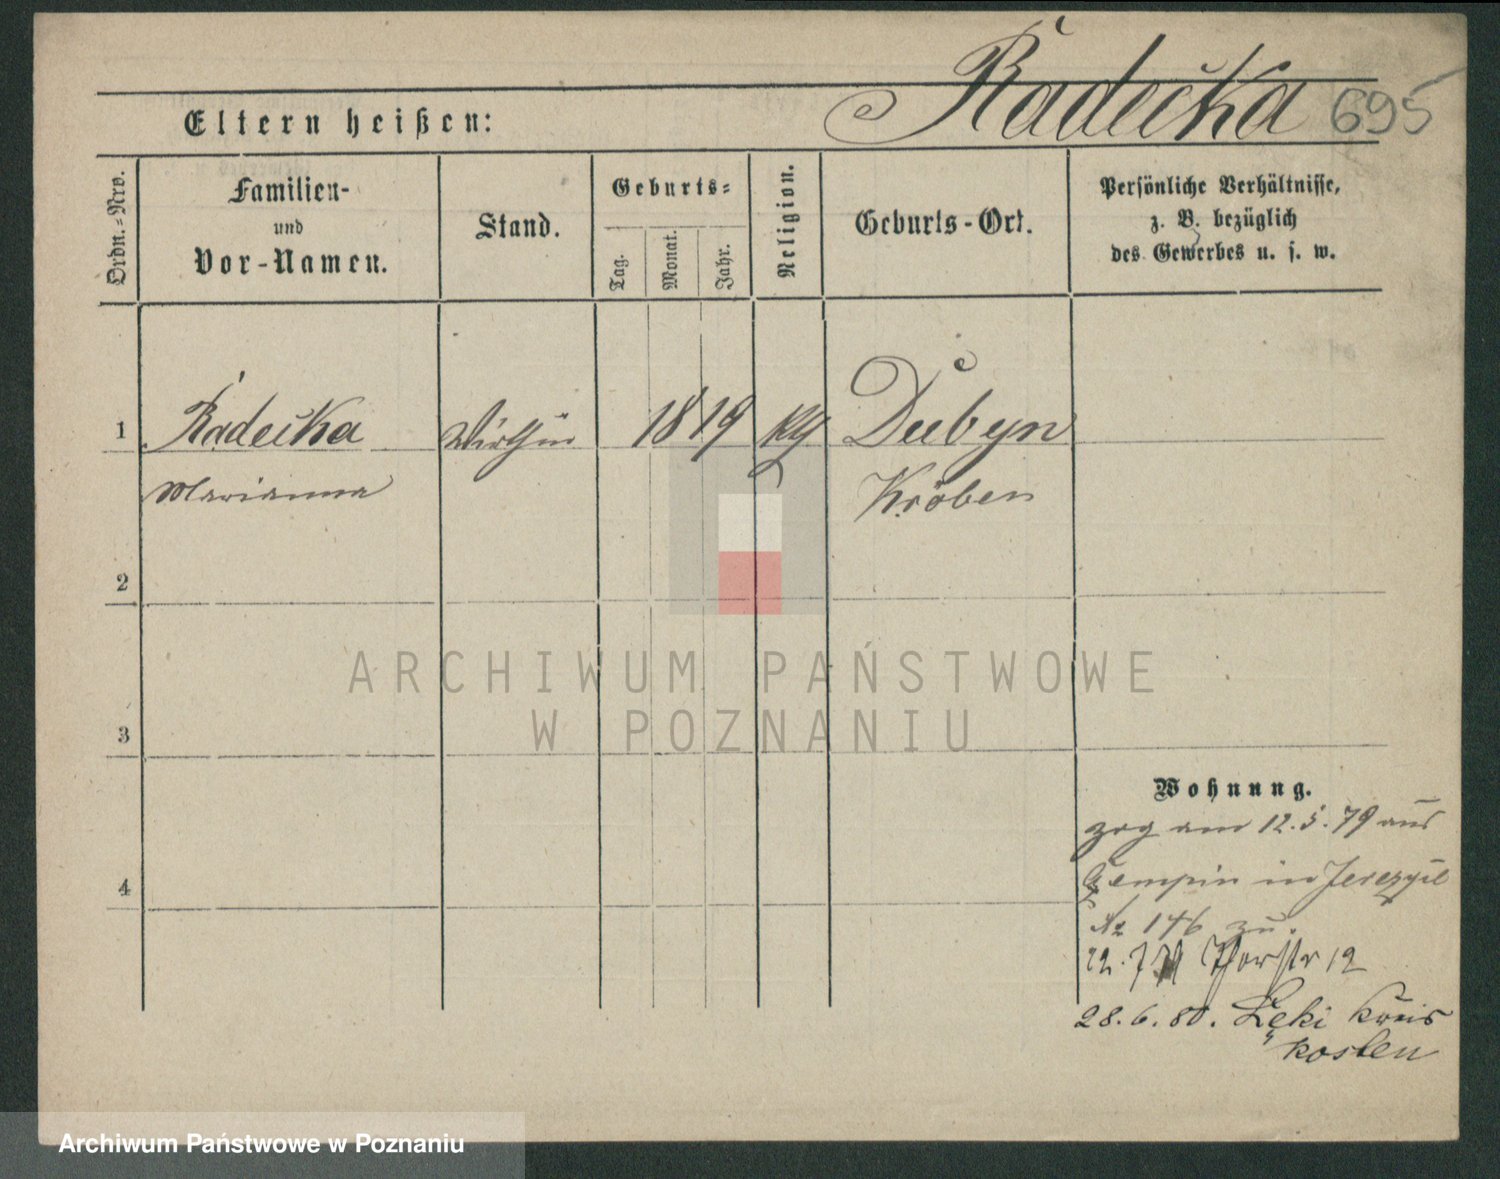 Radecka 695
Eltern heißen:
Ordn.-Nro.
Familien-
und
Vor-Namen.
Stand.
Geburts-
Tag.
Monat.
Jahr.
Religion.
Geburts-Ort.
Persönliche Verhältnisse,
z. B. bezüglich
des Gewerbes u. s. w.
1 Radecka Wirthin 1819 Dubyn
Marianna Kröben
2
3
4
Wohnung.
zog am 12.5.79 aus
Czempin in
No 146 zu.
22.7.79 12
28.6.80. Łęki Kreis
Kosten
ARCHIWUM PAŃSTWOWE
W POZNANIU
Archiwum Państwowe w Poznaniu